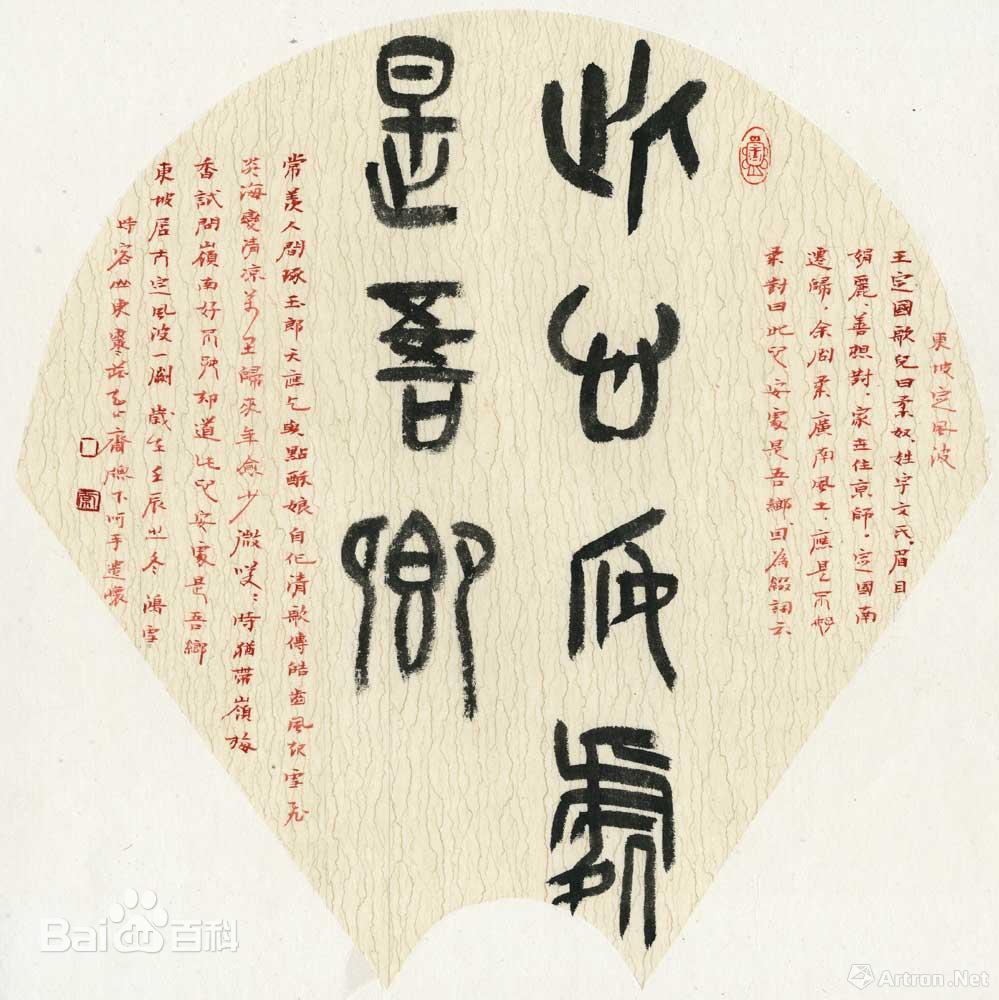 東坡定風波
王定國歌兒曰柔奴姓宇文氏眉目
娟麗、善應對、家世住京師。定國南
遷歸。余問柔廣南風土、應是不好
柔對曰此心安處是吾鄉、因為綴詞云
此心安處
是吾鄉
常羨人間琢玉郎天應乞與點酥娘自作清歌傳皓齒風起雪飛
炎海變清涼萬里歸來年愈少微笑〻時猶帶嶺梅
香試問嶺南好不好却道此心安處是吾鄉
東坡居士定風波一闋歲在壬辰之冬 鴻雪
時客山東 齋牕下呵手遣懷
Bai 百科
Artron.Net